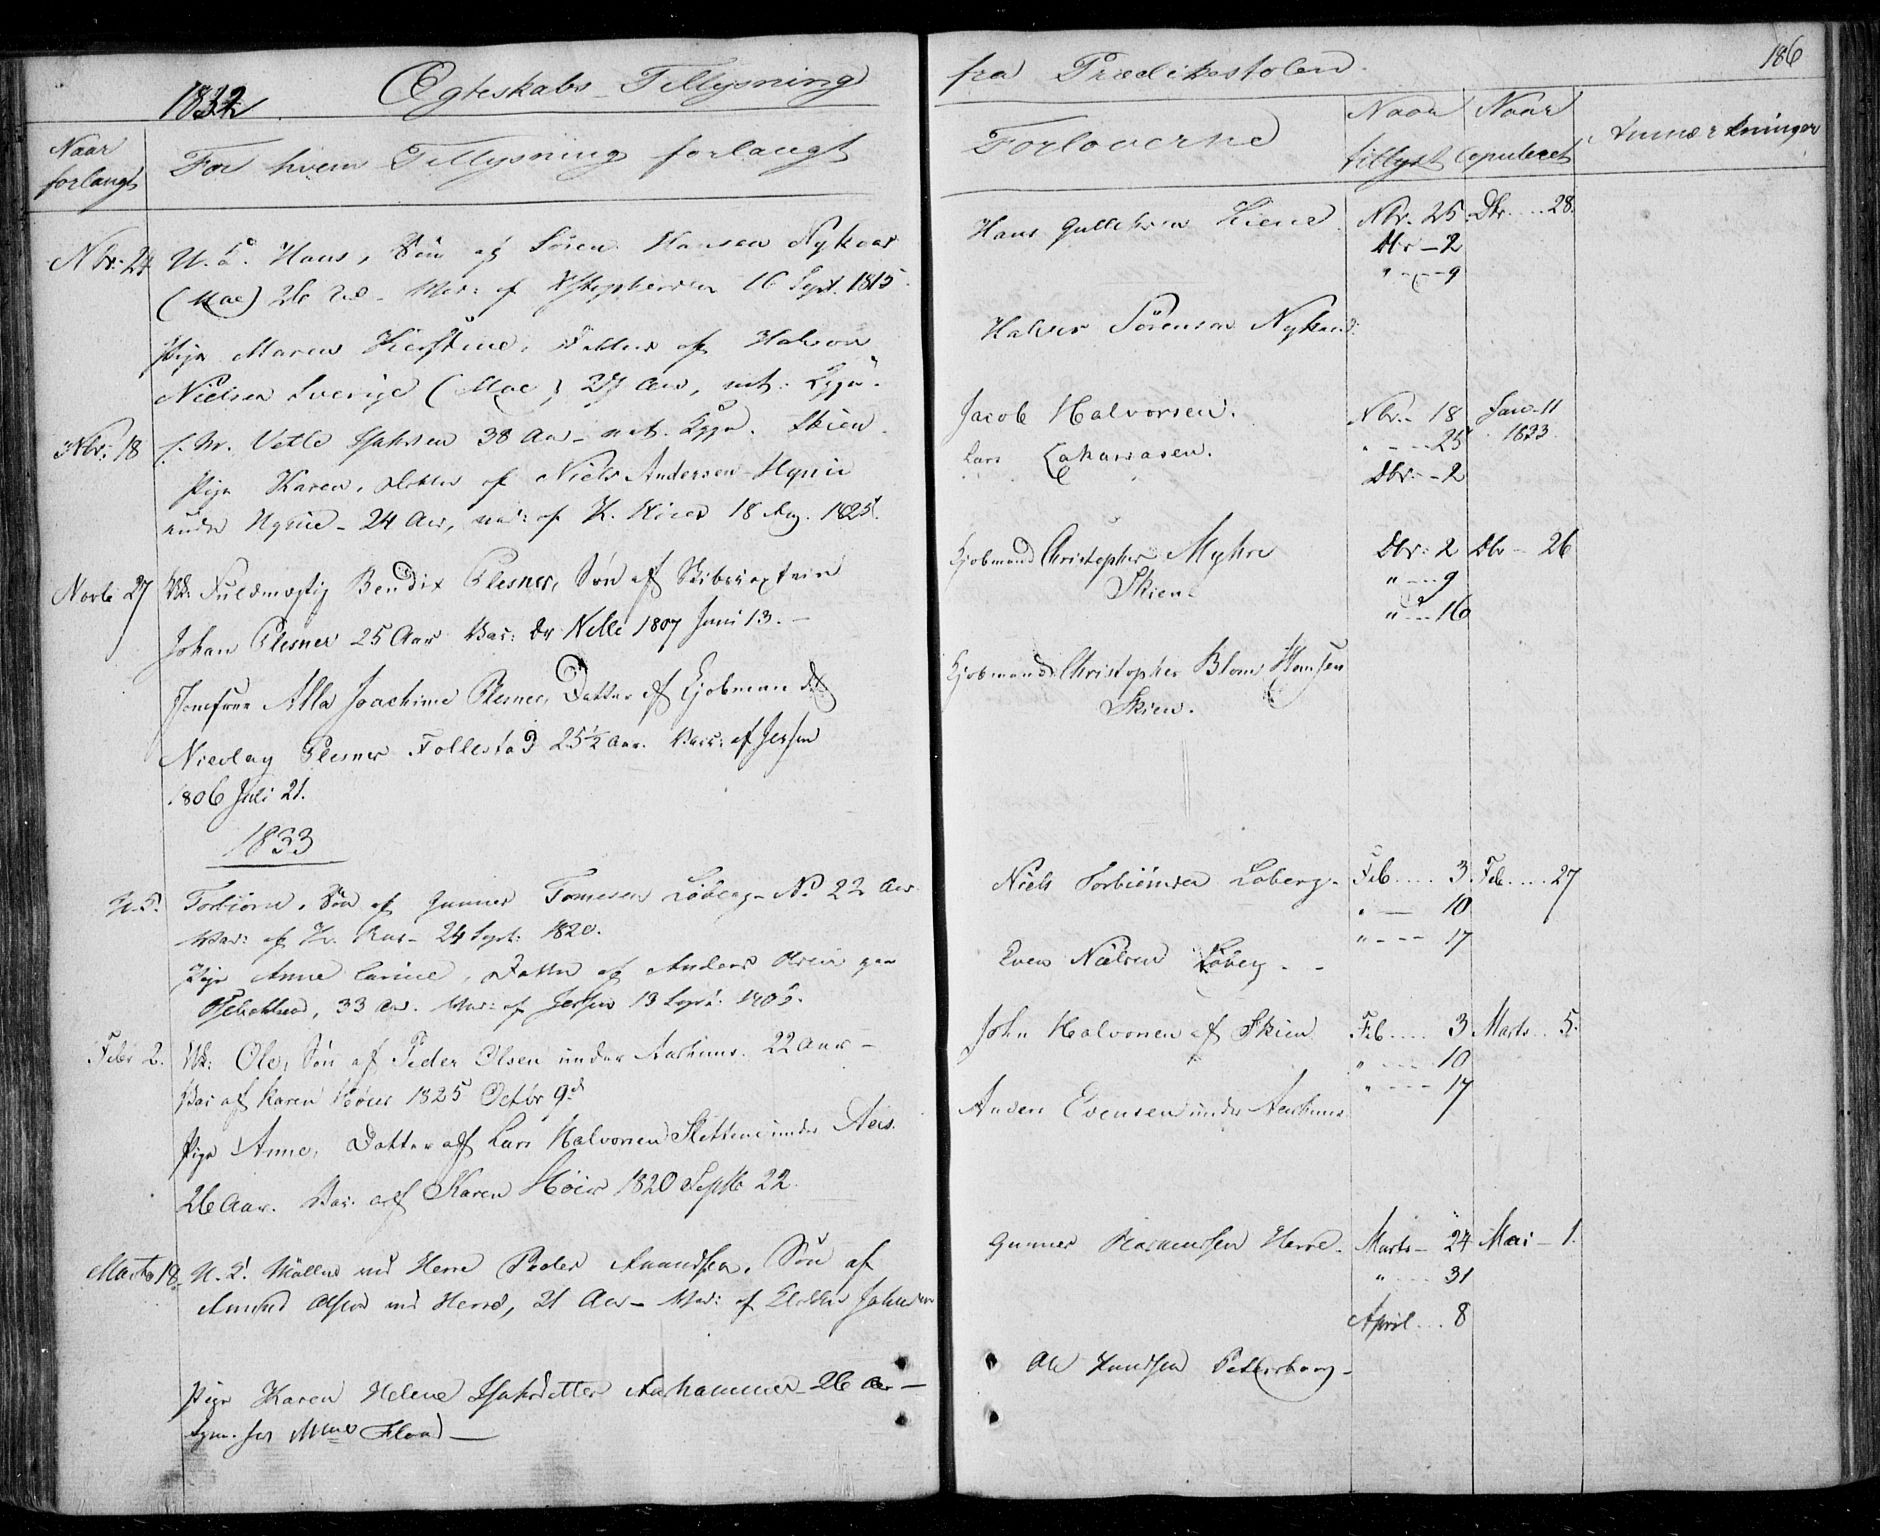 1832. Ægteskabs-Tillysning
Naar forlangt
For hvem Tillysning forlangt
Nbr. 24 Hans, Søn af Søren Hansen Nykaas
(Mæl) 26 Aar - Vac: af Stephensen 16 Sept. 1815
Pige Maren Kirstine, Datter af Halvor
Nielsen Sverige (Mæl) 27 Aar,
Nbr. 18 Vetle Isaksen 38 Aar - Skien.
Pige Karen, Datter af Niels Andersen Hynie
under Hynie - 24 Aar, vac: af K. Høier 18 Aug. 1825.
Novbr 27 Fuldmægtig Bendix Plesner, Søn af Skibscaptain
Johan Plesner 25 Aar Vac: Dr Nelle 1807 Juni 13. -
Jomfrue Alla Joachime Plesner, Datter af Kjøbmand
Nicolay Plesner Follestad 25½ Aar. Vacc: af Jersin
1806 Juli 21.
1833
Torbiørn, Søn af Gunner Tomesen Løberg - 22 Aar
Vac: af Kar. 24 Sept: 1820.
Pige Anne Carine, Datter af Anders
33 Aar. Vac: af Jersin 13 Sept:
Febr 2. Ole, Søn af Peder Olsen under Aarhuus. 22 Aar -
Vac af Karen Høier 1825 Octbr 9d
Pige Anne, Datter af Lars Halvorsen Slettene under Aas.
26 Aar. Vac: af Karen Høier 1820 Septb 22.
Marts 18. Møller ved Herre Peder Amundsen, Søn af
Amund ved Herre, 21 Aar - Vac: af
Pige Karen Helene Isaksdatter Aarhammer 26 Aar -
for Mme Flood -
fra Prædikestolen.
186
Forloverne
Naar tillyst
Naar Copuleret
Anmærkninger
Hans Gullichsen Kiene. Nbr. 25. Dbr.... 28.
Dbr - 2
" - - 9
Halvor Sørensen Nykaas
Jacob Halvorsen. Nbr. - 18 Jan. 11
1833.
Lars Zachariasen. - - - 25
Dbr. - 2
Kjøbmand Christopher Myhre Dbr: 2 Dbr - 26
Skien " - - - 9
" - - 16
Kjøbmand Christopher Blom
Skien.
Niels Torbiørnsen Løberg. Feb.... 3. Feb.... 27
" - 10
" - - - 17
Even Nielsen Løberg. -
John Halvorsen af Skien Feb.... 3 Marts.. 5.
" - - - 10
" - - - 17
Anders Evensen under Aarhuus
Gunner Rasmussen Herre. Marts - 24 Mai - 1.
" - - - 31
April... 8
Ole Knudsen Pettersborg -